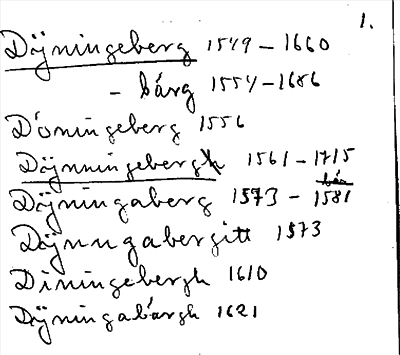 1.
Dÿningeberg 1549 – 1660
– bárg 1554 – 1686
Döningeberg 1556
Dÿnningebergh 1561 – 1715
Dÿningaberg 1573 – 1581
Dÿnngabergitt 1573
Diningebergh 1610
Dÿningabárgh 1621